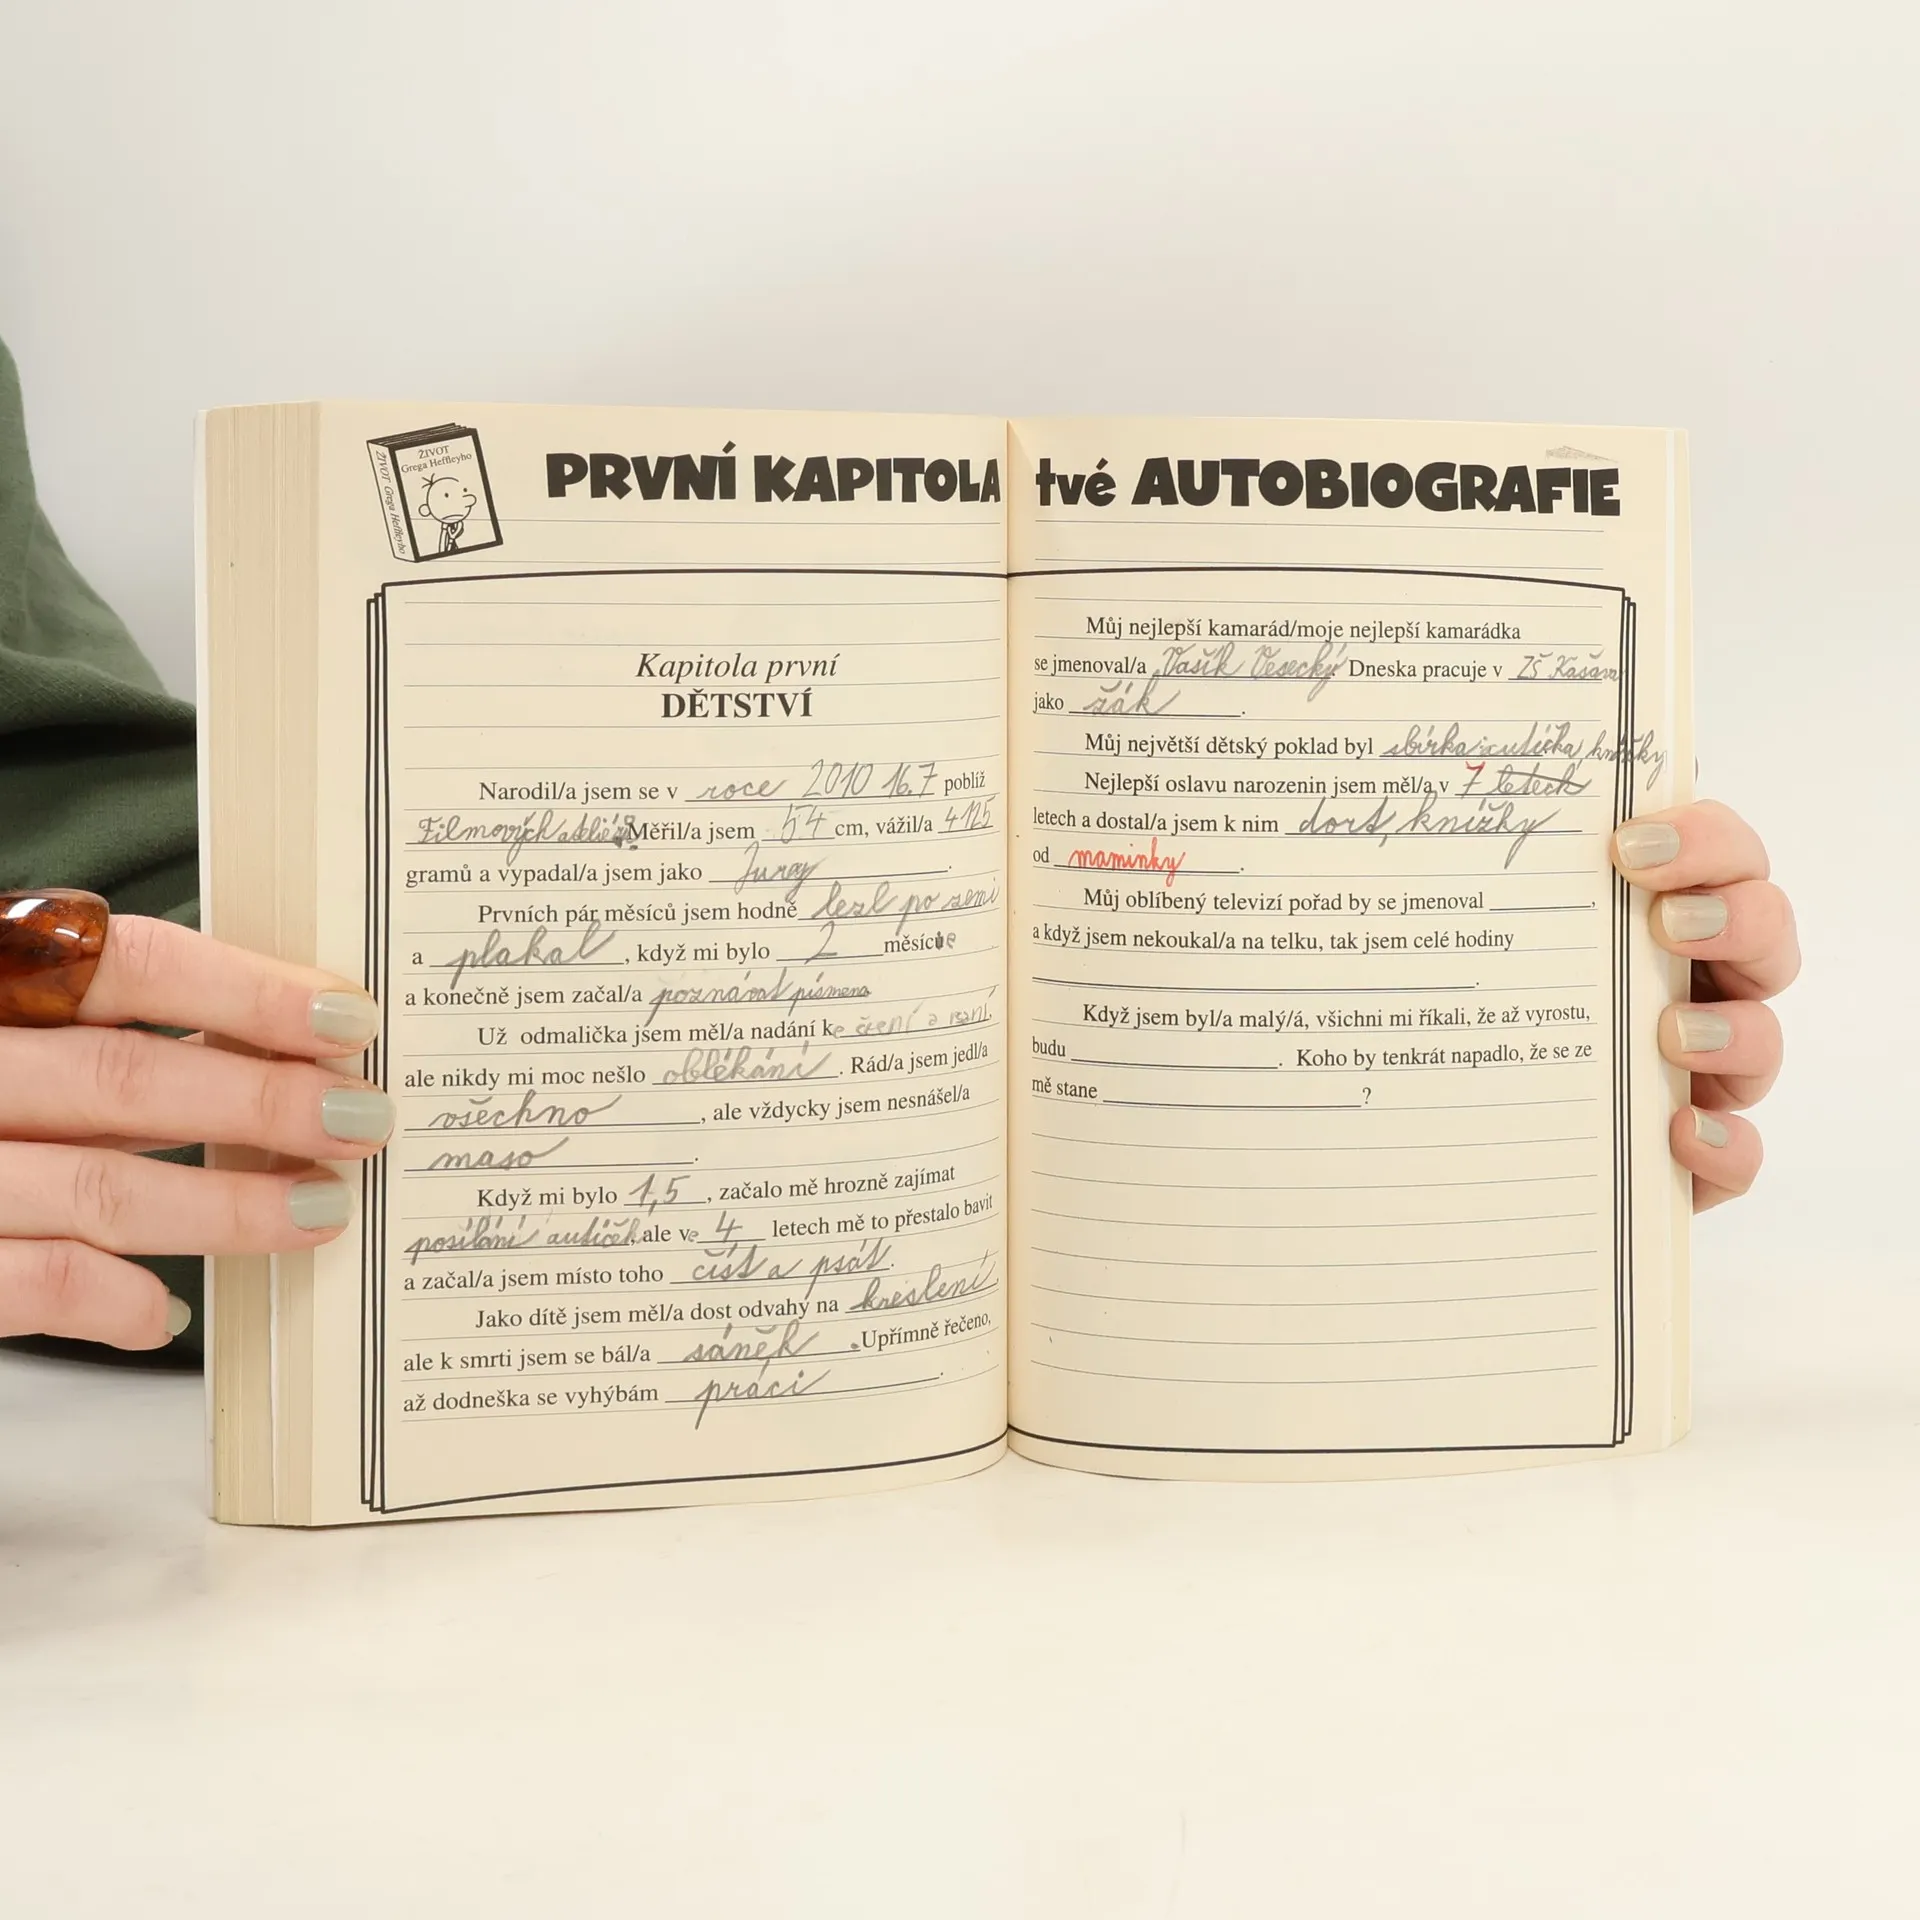 ŽIVOT
Grega Heffleyho
ŽIVOT Grega Heffleyho
PRVNÍ KAPITOLA tvé AUTOBIOGRAFIE
Kapitola první
DĚTSTVÍ
Narodil/a jsem se v roce 2010 16.7 poblíž
Filmových ateliérů. Měřil/a jsem 54 cm, vážil/a 4125
gramů a vypadal/a jsem jako
Prvních pár měsíců jsem hodně lezl po zemi
a plakal, když mi bylo 2 měsíce
a konečně jsem začal/a poznávat písmena
Už odmalička jsem měl/a nadání ke čtení a psaní,
ale nikdy mi moc nešlo oblékání. Rád/a jsem jedl/a
všechno, ale vždycky jsem nesnášel/a
maso.
Když mi bylo 1,5, začalo mě hrozně zajímat
posílání autíček, ale ve 4 letech mě to přestalo bavit
a začal/a jsem místo toho číst a psát.
Jako dítě jsem měl/a dost odvahy na kreslení,
ale k smrti jsem se bál/a sáněk. Upřímně řečeno,
až dodneška se vyhýbám práci.
Můj nejlepší kamarád/moje nejlepší kamarádka
se jmenoval/a Vašík Vesecký. Dneska pracuje v ZŠ Kašava
jako žák.
Můj největší dětský poklad byl sbírka autíčka, knížky
Nejlepší oslavu narozenin jsem měl/a v 7 letech
letech a dostal/a jsem k nim dort, knížky
od maminky.
Můj oblíbený televizí pořad by se jmenoval ,
a když jsem nekoukal/a na telku, tak jsem celé hodiny
.
Když jsem byl/a malý/á, všichni mi říkali, že až vyrostu,
budu . Koho by tenkrát napadlo, že se ze
mě stane ?